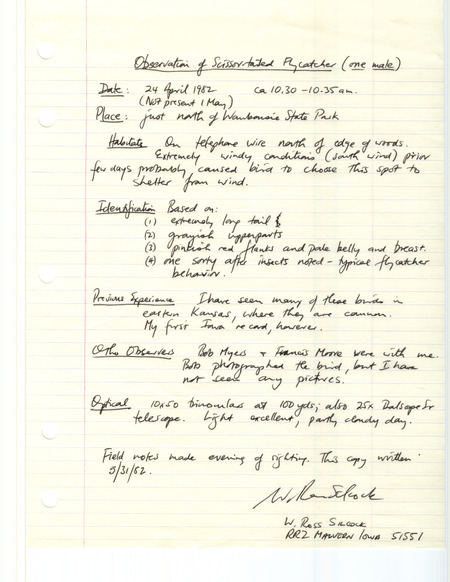 Observation of Scissor-tailed Flycatcher (one male)
Date: 24 April 1982 ca 10.30-10.35am.
(Not present 1 May)
Place: just north of Waubonsie State Park
Habitat On telephone wire north of edge of woods.
Extremely windy conditions (south wind) prior
few days probably caused bird to choose this spot to
shelter from wind.
Identification Based on:
(1) extremely long tail
(2) grayish upperparts
(3) pinkish red flanks and pale belly and breast.
(4) one sorty after insects noted - typical flycatcher
behavior.
Previous Experience I have seen many of these birds in
eastern Kansas, where they are common.
My first Iowa record, however.
Other Observers Bob Myers + Francis Moore were with me.
Bob photographed the bird, but I have
not seen any pictures.
Optical 10x50 binoculars at 100 yds; also 25x Balscope Sr
telescope. Light excellent, partly cloudy day.
Field notes made evening of sighting. This copy written
5/31/82.
W. Ross Silcock
W. Ross Silcock
RR2 Malvern Iowa 51551